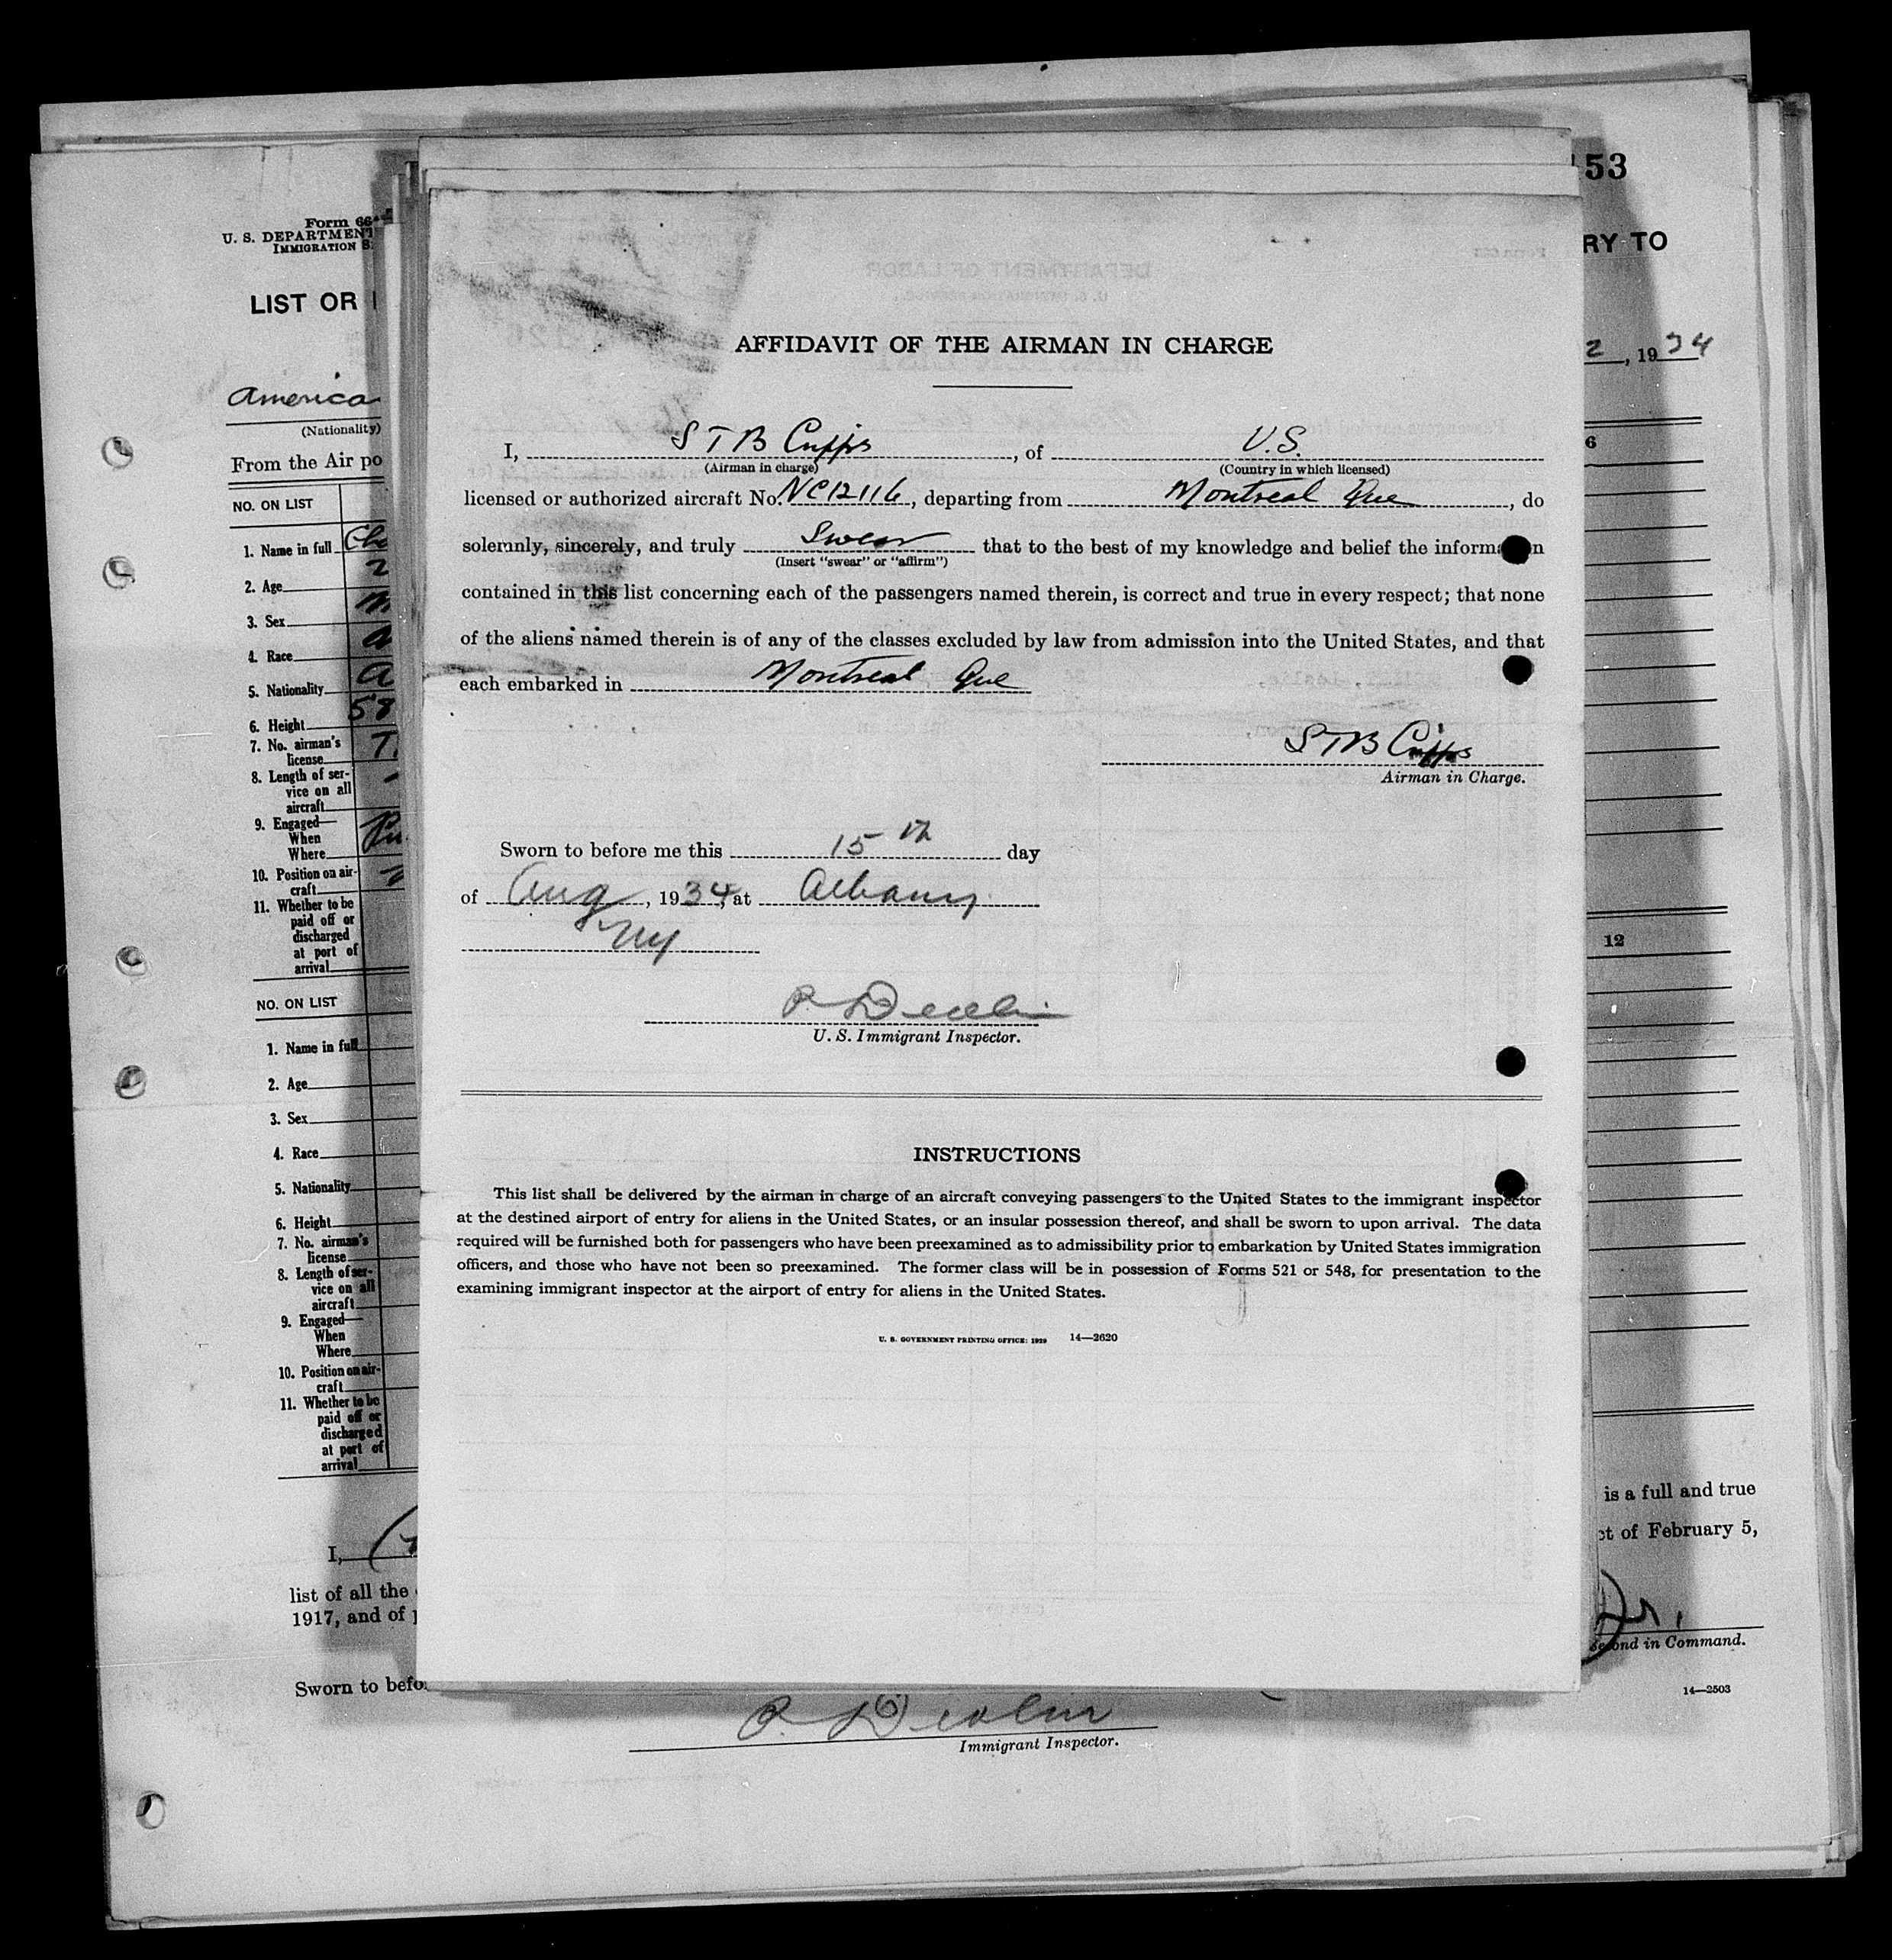 Form 66
U. S. DEPARTMENT
IMMIGRATION S
LIST OR
America
(Nationality)
From the Air po
NO. ON LIST
1. Name in full
2. Age
3. Sex
4. Race
5. Nationality
6. Height
7. No. airman's
license
8. Length of ser-
vice on all
aircraft
9. Engaged—
When
Where
10. Position on air-
craft
11. Whether to be
paid off or
discharged
at port of
arrival
NO. ON LIST
1. Name in full
2. Age
3. Sex
4. Race
5. Nationality
6. Height
7. No. airman's
license
8. Length of ser-
vice on all
aircraft
9. Engaged—
When
Where
10. Position on air-
craft
11. Whether to be
paid off or
discharged
at port of
arrival
I,
list of all the
1917, and of
Sworn to befo
AFFIDAVIT OF THE AIRMAN IN CHARGE
I, S T B Cripps, of U.S.
(Airman in charge) (Country in which licensed)
licensed or authorized aircraft No. NC12116, departing from Montreal Que, do
solemnly, sincerely, and truly Swear that to the best of my knowledge and belief the information
(Insert "swear" or "affirm")
contained in this list concerning each of the passengers named therein, is correct and true in every respect; that none
of the aliens named therein is of any of the classes excluded by law from admission into the United States, and that
each embarked in Montreal Que
S T B Cripps
Airman in Charge.
Sworn to before me this 15th day
of Aug, 1934, at Albany
NY
P. Devlin
U. S. Immigrant Inspector.
INSTRUCTIONS
This list shall be delivered by the airman in charge of an aircraft conveying passengers to the United States to the immigrant inspector
at the destined airport of entry for aliens in the United States, or an insular possession thereof, and shall be sworn to upon arrival. The data
required will be furnished both for passengers who have been preexamined as to admissibility prior to embarkation by United States immigration
officers, and those who have not been so preexamined. The former class will be in possession of Forms 521 or 548, for presentation to the
examining immigrant inspector at the airport of entry for aliens in the United States.
U. S. GOVERNMENT PRINTING OFFICE: 1929 14—2620
53
RY TO
2, 1934
6
12
is a full and true
ct of February 5,
Jr.
Second in Command.
14—2503
P. Devlin
Immigrant Inspector.